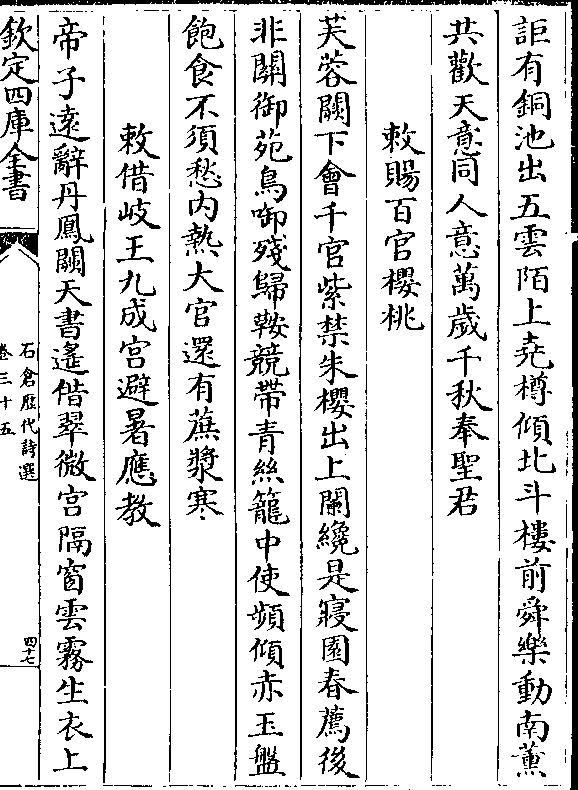 詎有銅池出五雲陌上堯樽傾北斗樓前舜樂動南薫
共歡天意同人意萬歲千秋奉聖君
敕賜百官櫻桃
芙蓉闕下會千官紫禁朱櫻出上闌纔是寢園春薦後
非闗御苑鳥啣殘歸鞍競帶青絲籠中使頻傾赤玉盤
飽食不須愁内熱大官還有蔗漿寒
敕借岐王九成宫避暑應教
帝子逺辭丹鳳闕天書遙借翠微宫隔窗雲霧生衣上
欽定四庫全書
石倉歷代詩選
卷三十五
四十七